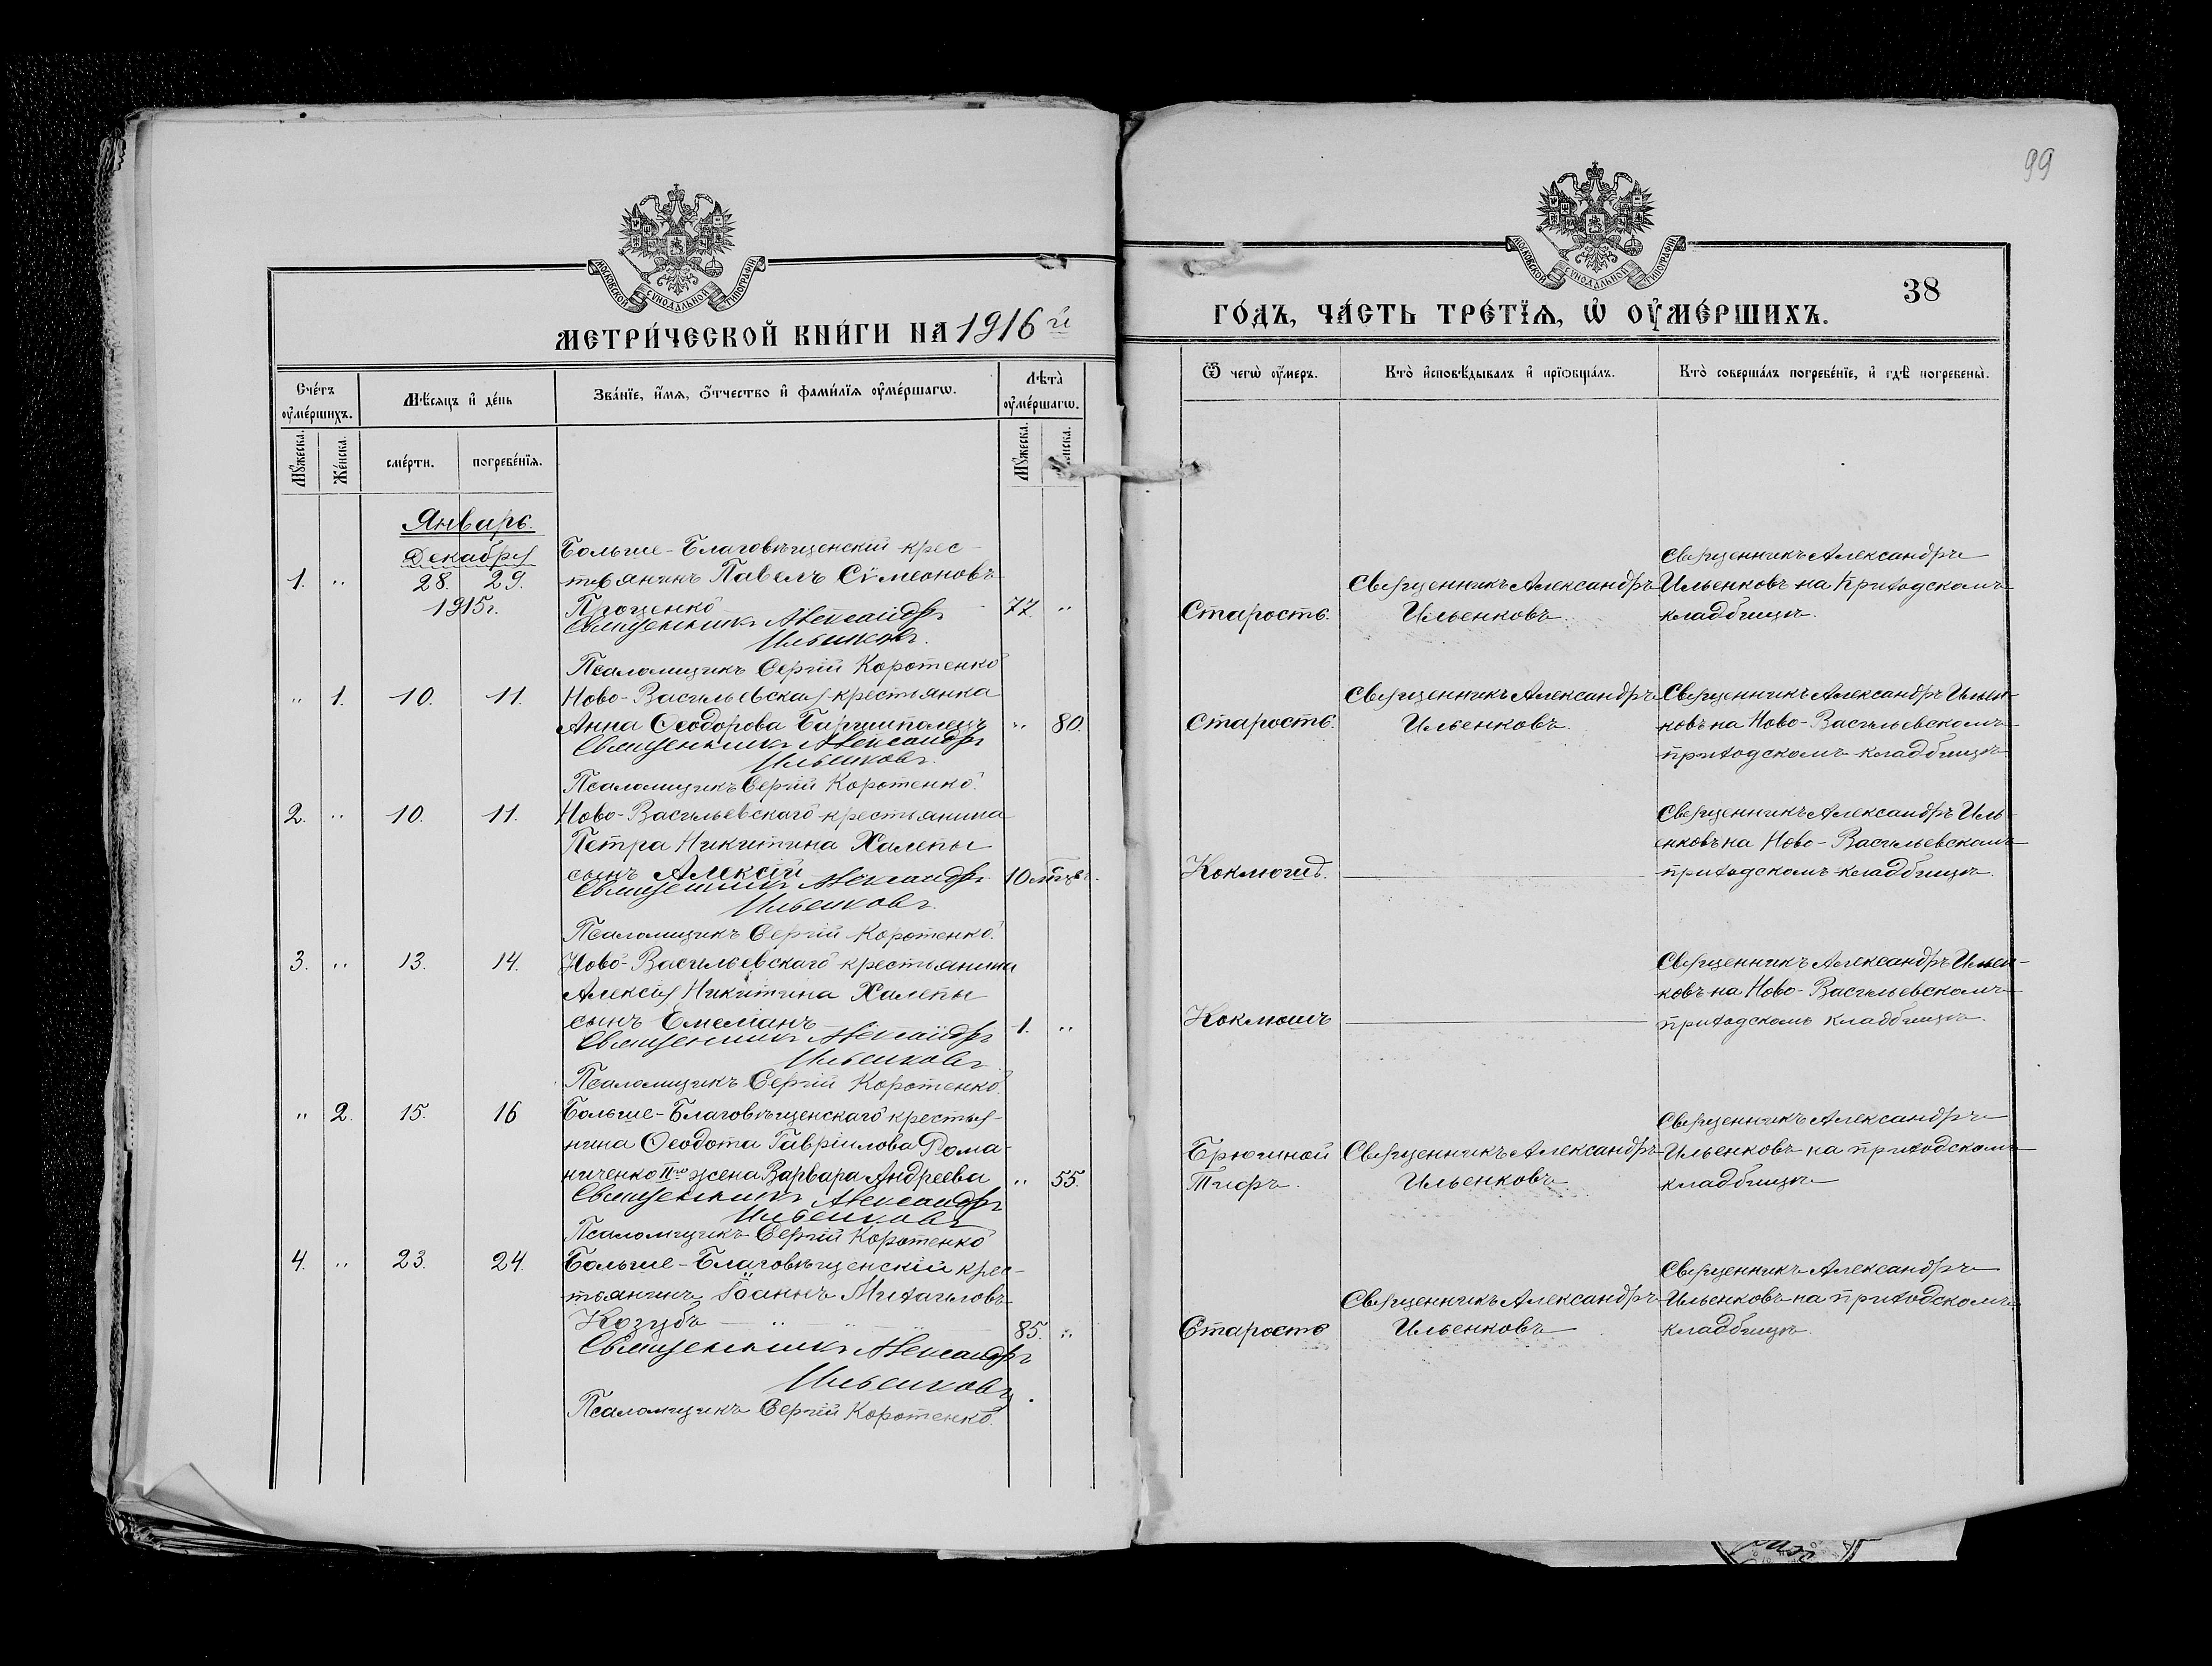 99
МОСКОВСКОЙ СѴНОДАЛЬНОЙ ТИПОГРАФІИ
МОСКОВСКОЙ СѴНОДАЛЬНОЙ ТИПОГРАФІИ
38
МЕТРИ́ЧЕСКОЙ КНИ́ГИ НА 1916й
ГО́ДЪ, ЧА́СТЬ ТРЕ́ТЇѦ, Ѡ҆ ОУ҆МЕ́РШИХЪ.
Сче́тъ оу҆ме́ршихъ.
Мꙋ́жеска.
Же́нска.
Мѣ́сяцъ и҆ де́нь
сме́рти.
погребе́нїѧ.
Зва́нїе, и҆́мѧ, ѻ҆́тчество и҆ фами́лїѧ оу҆ме́ршагѡ.
Лѣ́та оу҆ме́ршагѡ.
Мꙋ́жеска.
Же́нска.
Ѿ чегѡ̀ оу҆́меръ.
Кто̀ и҆сповѣ́дывалъ и҆ прїѻбща́лъ.
Кто̀ соверша́лъ погребе́нїе, и҆ гдѣ̀ погребены̀.
Январь.
Декабря
1. " 28. 29.
1915г.
Больше-Благовѣщенскій крес-
тьянинъ Павелъ Сѵмеоновъ
Проценко 77 "
Священникъ Александръ
Ильенковъ.
Псаломщикъ Сергій Коротенко
Старость.
Священникъ Александръ
Ильенковъ.
Священникъ Александръ
Ильенковъ на приходскомъ
кладбищѣ.
" 1. 10. 11.
Ново-Васильевская крестьянка
Анна Ѳеодорова Баришполецъ " 80.
Священникъ Александръ
Ильенковъ.
Псаломщикъ Сергій Коротенко.
Старость.
Священникъ Александръ
Ильенковъ.
Священникъ Александръ Ильен-
ковъ на Ново-Васильевскомъ
приходскомъ кладбищѣ
2. " 10. 11.
Ново-Васильевскаго крестьянина
Петра Никитина Халепы
сынъ Алексій 10 мѣс.
Священникъ Александръ
Ильенковъ.
Псаломщикъ Сергій Коротенко.
Коклюшъ.
Священникъ Александръ Иль-
енковъ на Ново-Васильевскомъ
приходскомъ кладбищѣ.
3. " 13. 14.
Ново-Васильевскаго крестьянина
Алексія Никитина Халепы
сынъ Емеліанъ 1. "
Священникъ Александръ
Ильенковъ
Псаломщикъ Сергій Коротенко.
Коклюшъ
Священникъ Александръ Ильен-
ковъ на Ново-Васильевскомъ
приходскомъ кладбищѣ.
" 2. 15. 16
Больше-Благовѣщенскаго крестья-
нина Ѳеодота Гавріилова Рома-
ниченко IIго жена Варвара Андреева " 55.
Священникъ Александръ
Ильенковъ
Псаломщикъ Сергій Коротенко
Брюшной
Тифъ.
Священникъ Александръ
Ильенковъ
Священникъ Александръ
Ильенковъ на приходскомъ
кладбищѣ
4. " 23. 24.
Больше-Благовѣщенскій крес-
тьянинъ Іоаннъ Михаиловъ
Козубъ 85. "
Священникъ Александръ
Ильенковъ.
Псаломщикъ Сергій Коротенко.
Старость
Священникъ Александръ
Ильенковъ
Священникъ Александръ
Ильенковъ на приходскомъ
кладбищѣ.